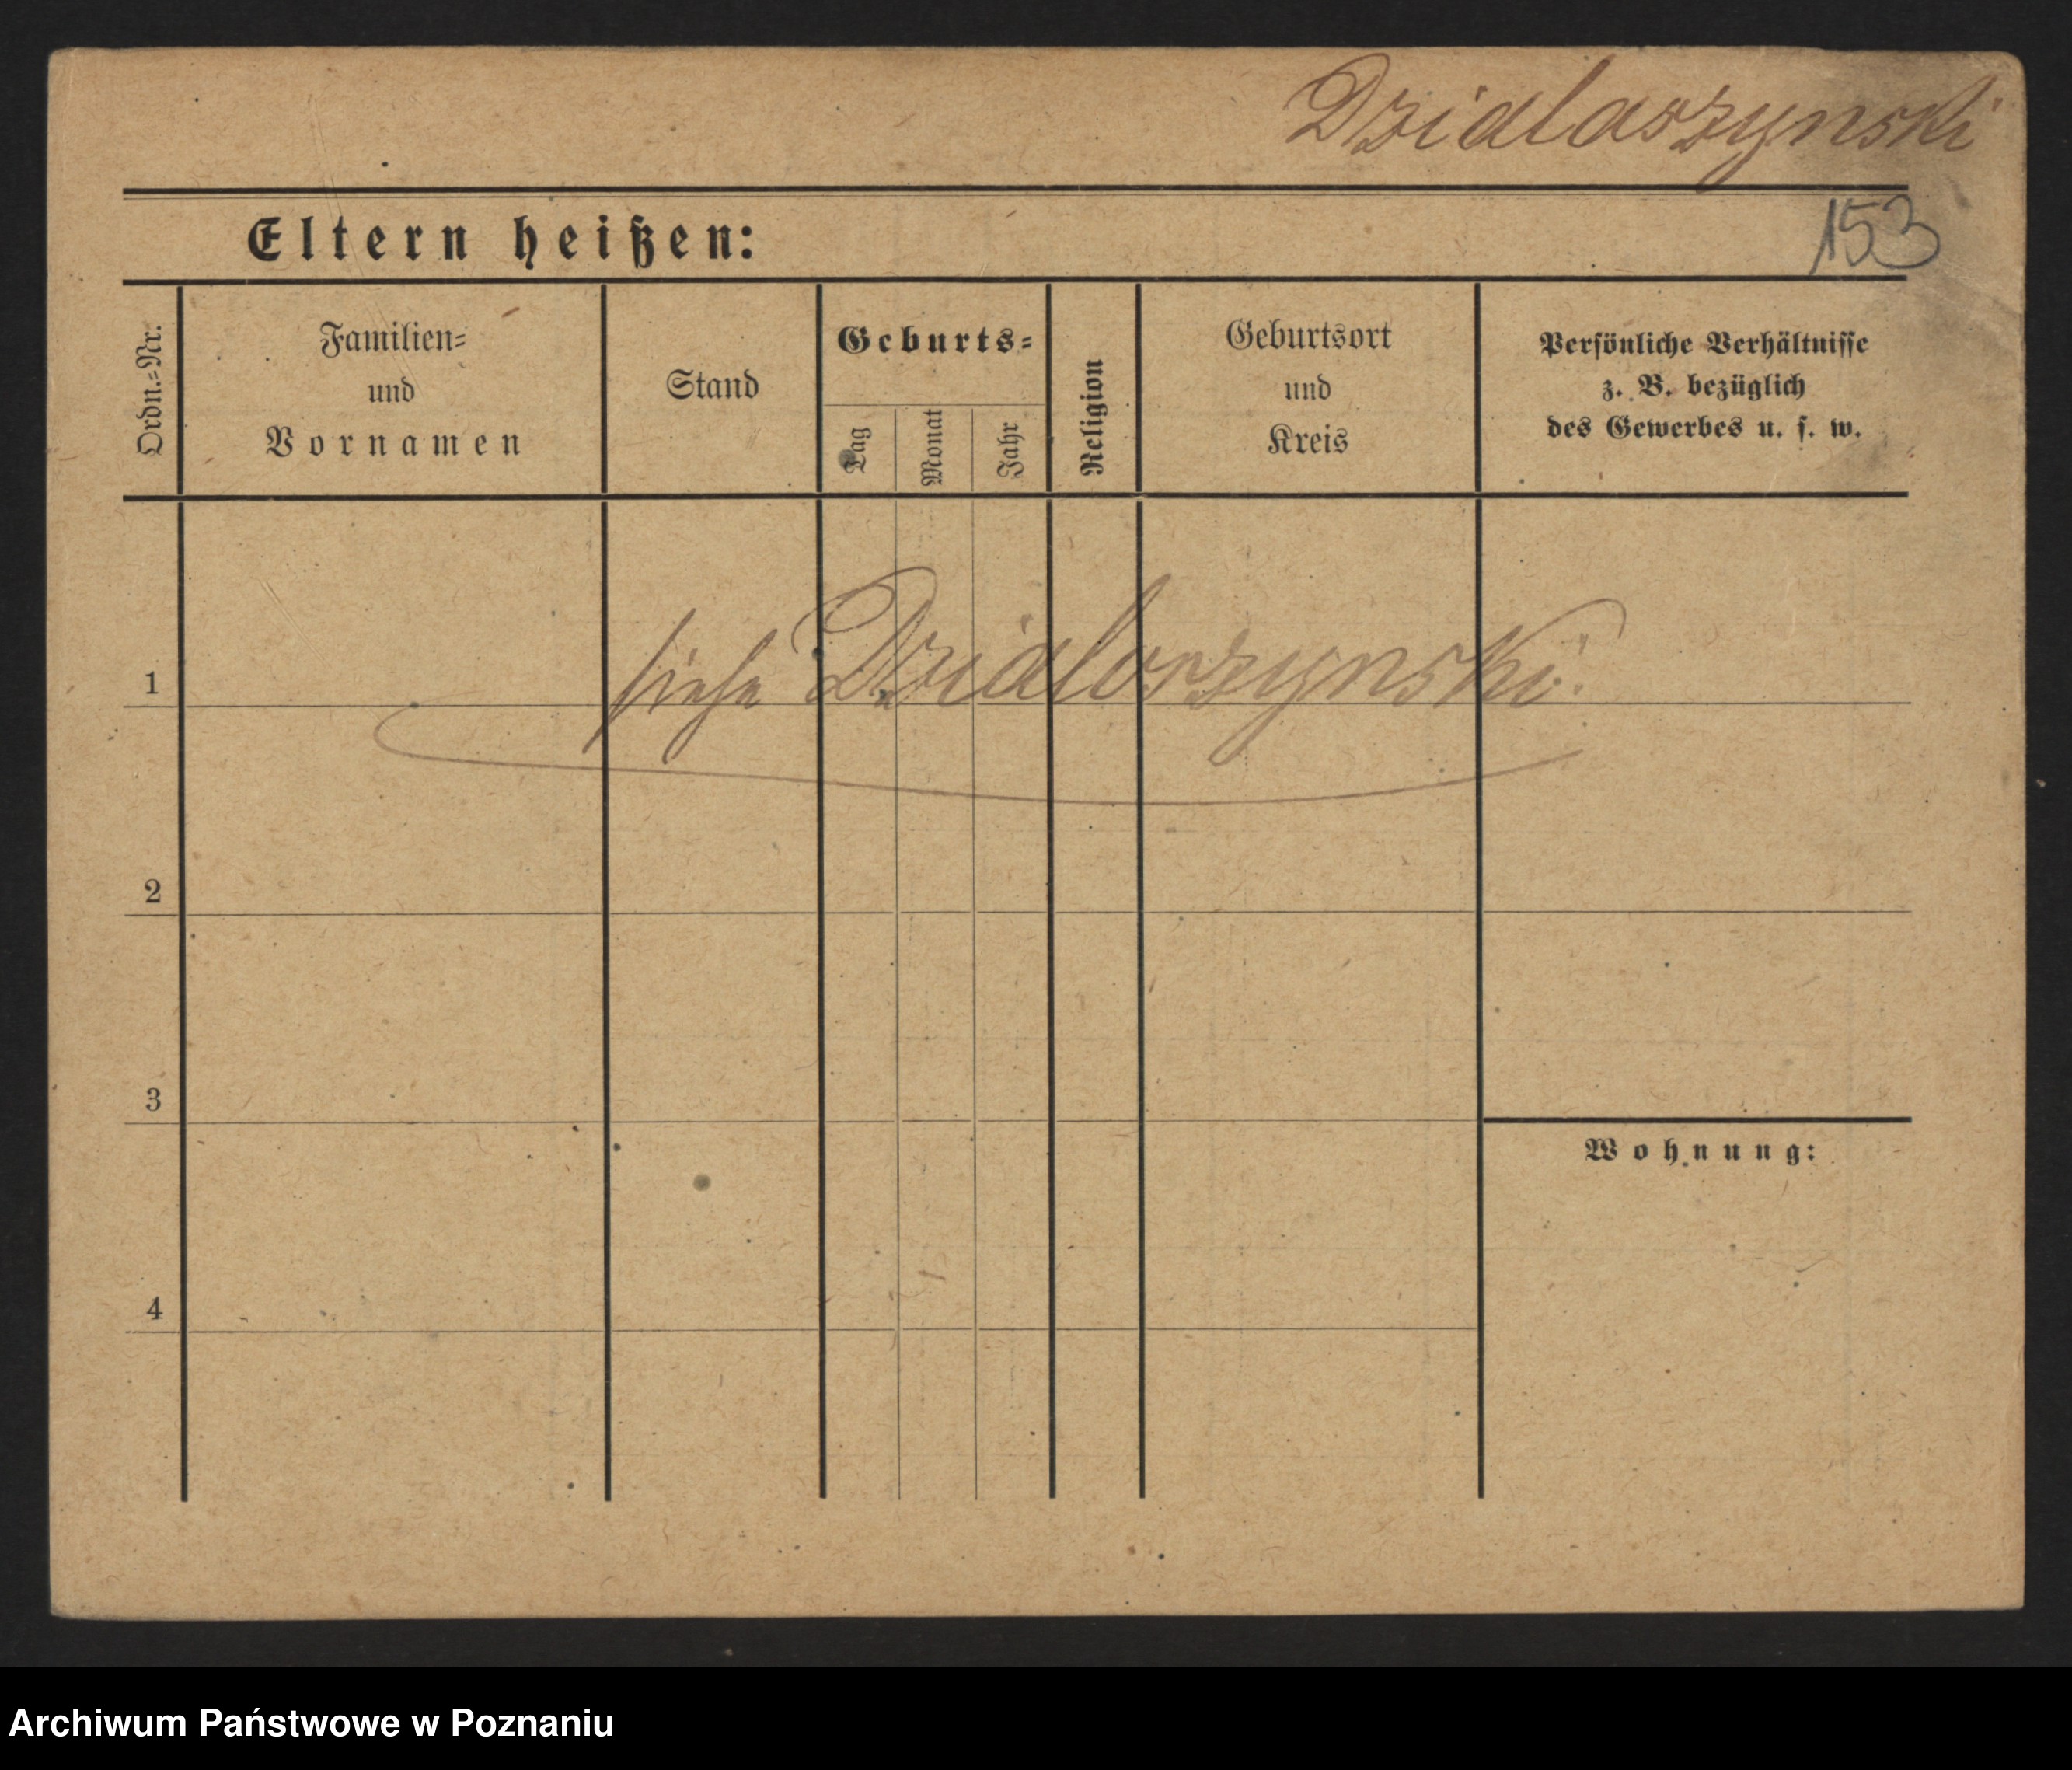 Dzialaszynski
153
Eltern heißen:
Ordn.=Nr.
Familien=
und
Vornamen
Stand
Geburts=
Tag
Monat
Jahr
Religion
Geburtsort
und
Kreis
Persönliche Verhältnisse
z. B. bezüglich
des Gewerbes u. s. w.
1
siehe Dzialoszynski.
2
3
Wohnung:
4
Archiwum Państwowe w Poznaniu